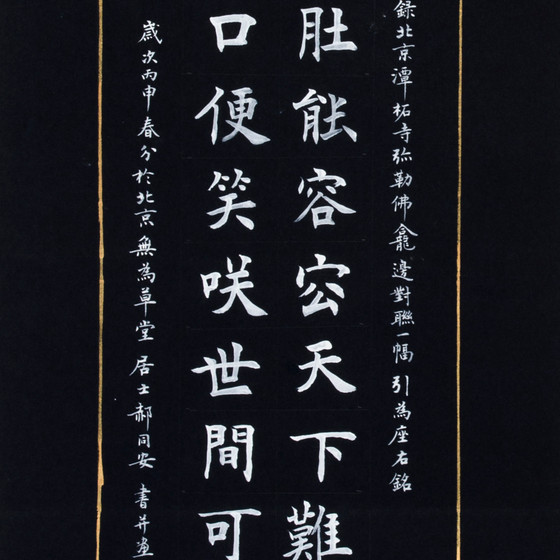 錄北京潭柘寺弥勒佛龕邊對聯一幅 引為座右銘
肚能容㝐天下難
口便笑咲世間可
歲次丙申春分於北京無為草堂 居士郝同安 書并畫